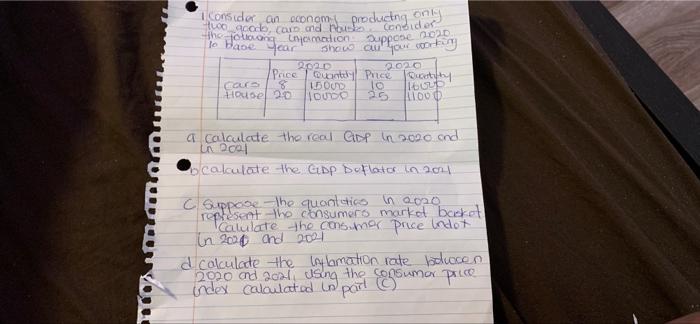 1 Consider an economy producing only
two goods, cars and houses. Consider
the following information. Suppose 2020
is base year show all your working
2020 2020
Price Quantity Price Quantity
Cars 8 15000 10
House 20 10000 25 11000
a calculate the real GDP in 2020 and
in 2021
b calculate the GDP Deflator in 2021
C Suppose the quantities in 2020
represent the consumers market basket
Calulate the consumer price index
in 2020 and 2021
d calculate the inflamation rate between
2020 and 2021, using the consumer price
index calculated in part (C)